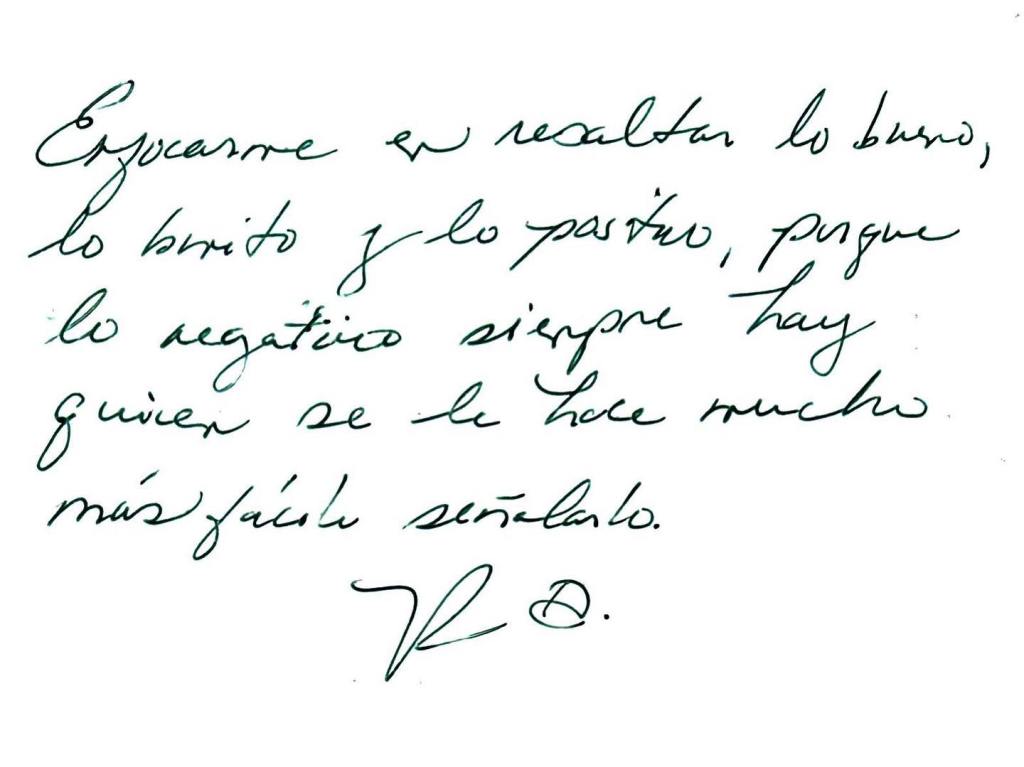 Enfocarme en resaltar lo bueno,
lo bonito y lo positivo, porque
lo negativo siempre hay
quien se le hace mucho
más fácil señalarlo.